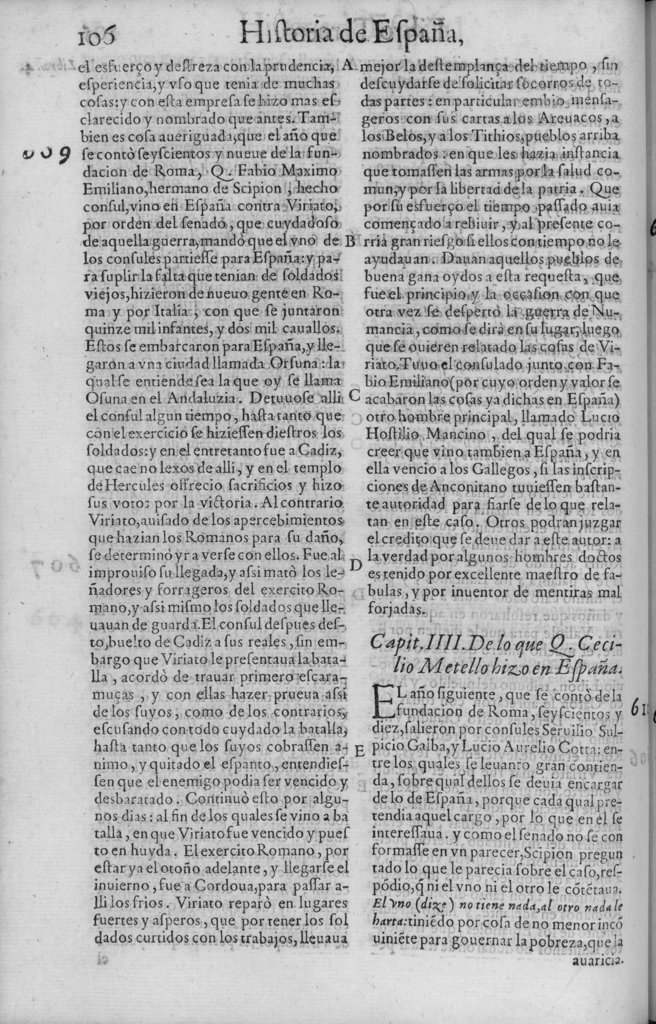 106 Historia de España,
el esfuerço y destreza con la prudencia,
esperiencia, y vso que tenia de muchas
cosas: y con esta empresa se hizo mas es
clarecido y nombrado que antes. Tam-
bien es cosa aueriguada, que el año que
609
se contò seyscientos y nueue de la fun-
dacion de Roma, Q. Fabio Maximo
Emiliano, hermano de Scipion, hecho
consul, vino en España contra Viriato,
por orden del senado, que cuydadoso
de aquella guerra, mandò que el vno de
los consules partiesse para España: y pa-
ra suplir la falta que tenian de soldados
viejos, hizieron de nueuo gente en Ro-
ma y por Italia, con que se juntaron
quinze mil infantes, y dos mil cauallos.
Estos se embarcaron para España, y lle-
garon a vna ciudad llamada Orsuna: la
qual se entiende sea la que oy se llama
Osuna en el Andaluzia. Detuuose alli
el consul algun tiempo, hasta tanto que
con el exercicio se hiziessen diestros los
soldados: y en el entretanto fue a Cadiz,
que cae no lexos de alli, y en el templo
de Hercules offrecio sacrificios y hizo
sus votos por la victoria. Al contrario
Viriato, auisado de los apercebimientos
que hazian los Romanos para su daño,
se determinò yr a verse con ellos. Fue al
improuiso su llegada, y assi matò los le-
ñadores y forrageros del exercito Ro-
mano, y assi mismo los soldados que lle-
uauan de guarda. El consul despues des-
to, buelto de Cadiz a sus reales, sin em-
bargo que Viriato le presentaua la bata-
lla, acordò de trauar primero escara-
muças, y con ellas hazer prueua assi
de los suyos, como de los contrarios,
escusando con todo cuydado la batalla,
hasta tanto que los suyos cobrassen a-
nimo, y quitado el espanto, entendies-
sen que el enemigo podia ser vencido y
desbaratado. Continuò esto por algu-
nos dias: al fin de los quales se vino a ba
talla, en que Viriato fue vencido y pues
to en huyda. El exercito Romano, por
estar ya el otoño adelante, y llegarse el
inuierno, fue a Cordoua, para passar a-
lli los frios. Viriato reparò en lugares
fuertes y asperos, que por tener los sol
dados curtidos con los trabajos, lleuaua
A
B
C
D
E
mejor la destemplança del tiempo, sin
descuydarse de solicitar socorros de to-
das partes: en particular embio mensa-
geros con sus cartas a los Areuacos, a
los Belos, y a los Tithios, pueblos arriba
nombrados: en que les hazia instancia
que tomassen las armas por la salud co-
mun, y por la libertad de la patria. Que
por su esfuerço el tiempo passado auia
començado a rebiuir, y al presente co-
rria gran riesgo si ellos con tiempo no le
ayudauan. Dauan aquellos pueblos de
buena gana oydos a esta requesta, que
fue el principio y la occasion con que
otra vez se despertò la guerra de Nu-
mancia, como se dirà en su lugar, luego
que se ouieren relatado las cosas de Vi-
riato. Tuuo el consulado junto con Fa-
bio Emiliano (por cuyo orden y valor se
acabaron las cosas ya dichas en España)
otro hombre principal, llamado Lucio
Hostilio Mancino, del qual se podria
creer que vino tambien a España, y en
ella vencio a los Gallegos, si las inscrip-
ciones de Anconitano tuuiessen bastan-
te autoridad para fiarse de lo que rela-
tan en este caso. Otros podran juzgar
el credito que se deue dar a este autor: a
la verdad por algunos hombres doctos
es tenido por excellente maestro de fa-
bulas, y por inuentor de mentiras mal
forjadas.
Capit. IIII. De lo que Q. Ceci-
lio Metello hizo en España.
EL año siguiente, que se contò de la
fundacion de Roma, seyscientos y
diez, salieron por consules Seruilio Sul-
picio Galba, y Lucio Aurelio Cotta: en-
tre los quales se leuanto gran contien-
da, sobre qual dellos se deuia encargar
de lo de España, porque cada qual pre-
tendia aquel cargo, por lo que en el se
interessaua. y como el senado no se con
formasse en vn parecer, Scipion pregun
tado lo que le parecia sobre el caso, res-
põdio, q̃ ni el vno ni el otro le cõtẽtaua.
El vno (dize) no tiene nada, al otro nada le
harta: tiniẽdo por cosa de no menor incõ
uiniẽte para gouernar la pobreza, que la
auaricia.